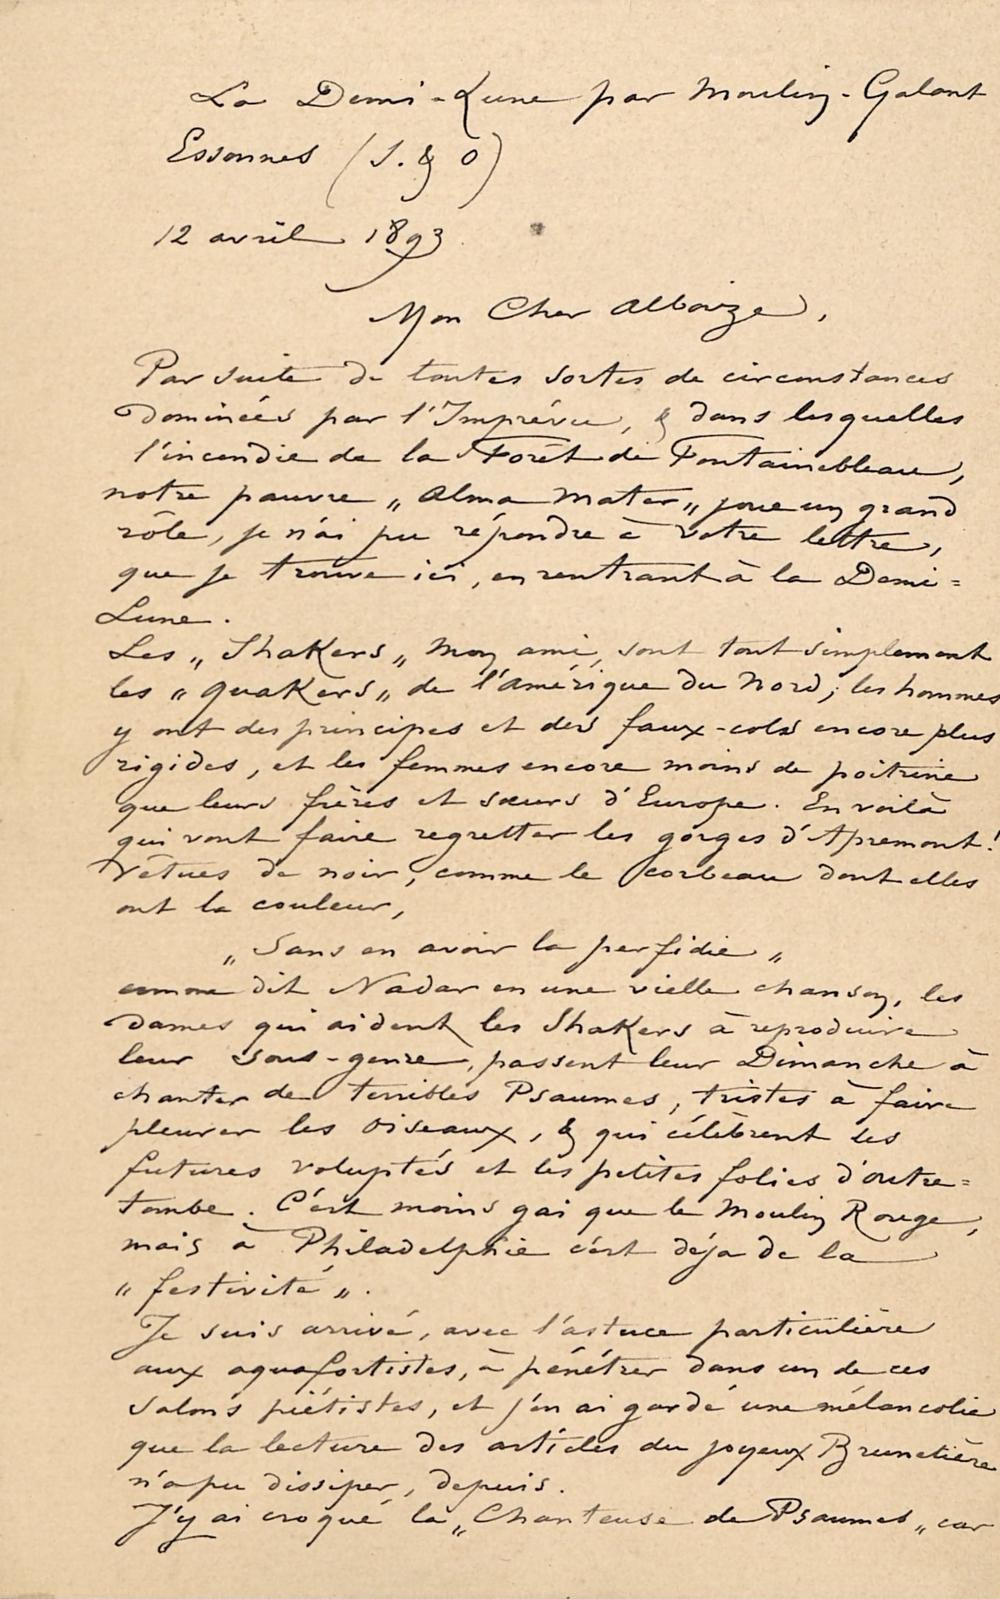 La Demi-Lune par Moulin-Galant
Essonnes (S. & O)
12 avril 1893
Mon Cher Alboize,
Par suite de toutes sortes de circonstances
dominées par l'Imprévu, & dans lesquelles
l'incendie de la Forêt de Fontainebleau,
notre pauvre „ Alma Mater „ joue un grand
rôle, je n'ai pu répondre à votre lettre,
que je trouve ici, en rentrant à la Demi=
Lune.
Les „ Shakers „ mon ami, sont tout simplement
les „ Quakers „ de l'Amérique du Nord; les hommes
y ont des principes et des faux-cols encore plus
rigides, et les femmes encore moins de poitrine
que leurs frères et sœurs d'Europe. En voilà
qui vont faire regretter les gorges d'Apremont!
Vêtues de noir, comme le corbeau dont elles
ont la couleur,
„ Sans en avoir la perfidie „
comme dit Nadar en une vielle chanson, les
dames qui aident les Shakers à reproduire
leur sous-genre, passent leur Dimanche à
chanter de terribles Psaumes, tristes à faire
pleurer les oiseaux, & qui célèbrent les
futures voluptés et les petites folies d'outre=
tombe. C'est moins gai que le Moulin Rouge,
mais à Philadelphie c'est déja de la
„ festivité „.
Je suis arrivé, avec l'astuce particulière
aux aquafortistes, à pénétrer dans un de ces
salons piétistes, et j'en ai gardé une mélancolie
que la lecture des articles du joyeux Brunetière
n'a pu dissiper, depuis.
J'y ai croqué la „ Chanteuse de Psaumes „ car